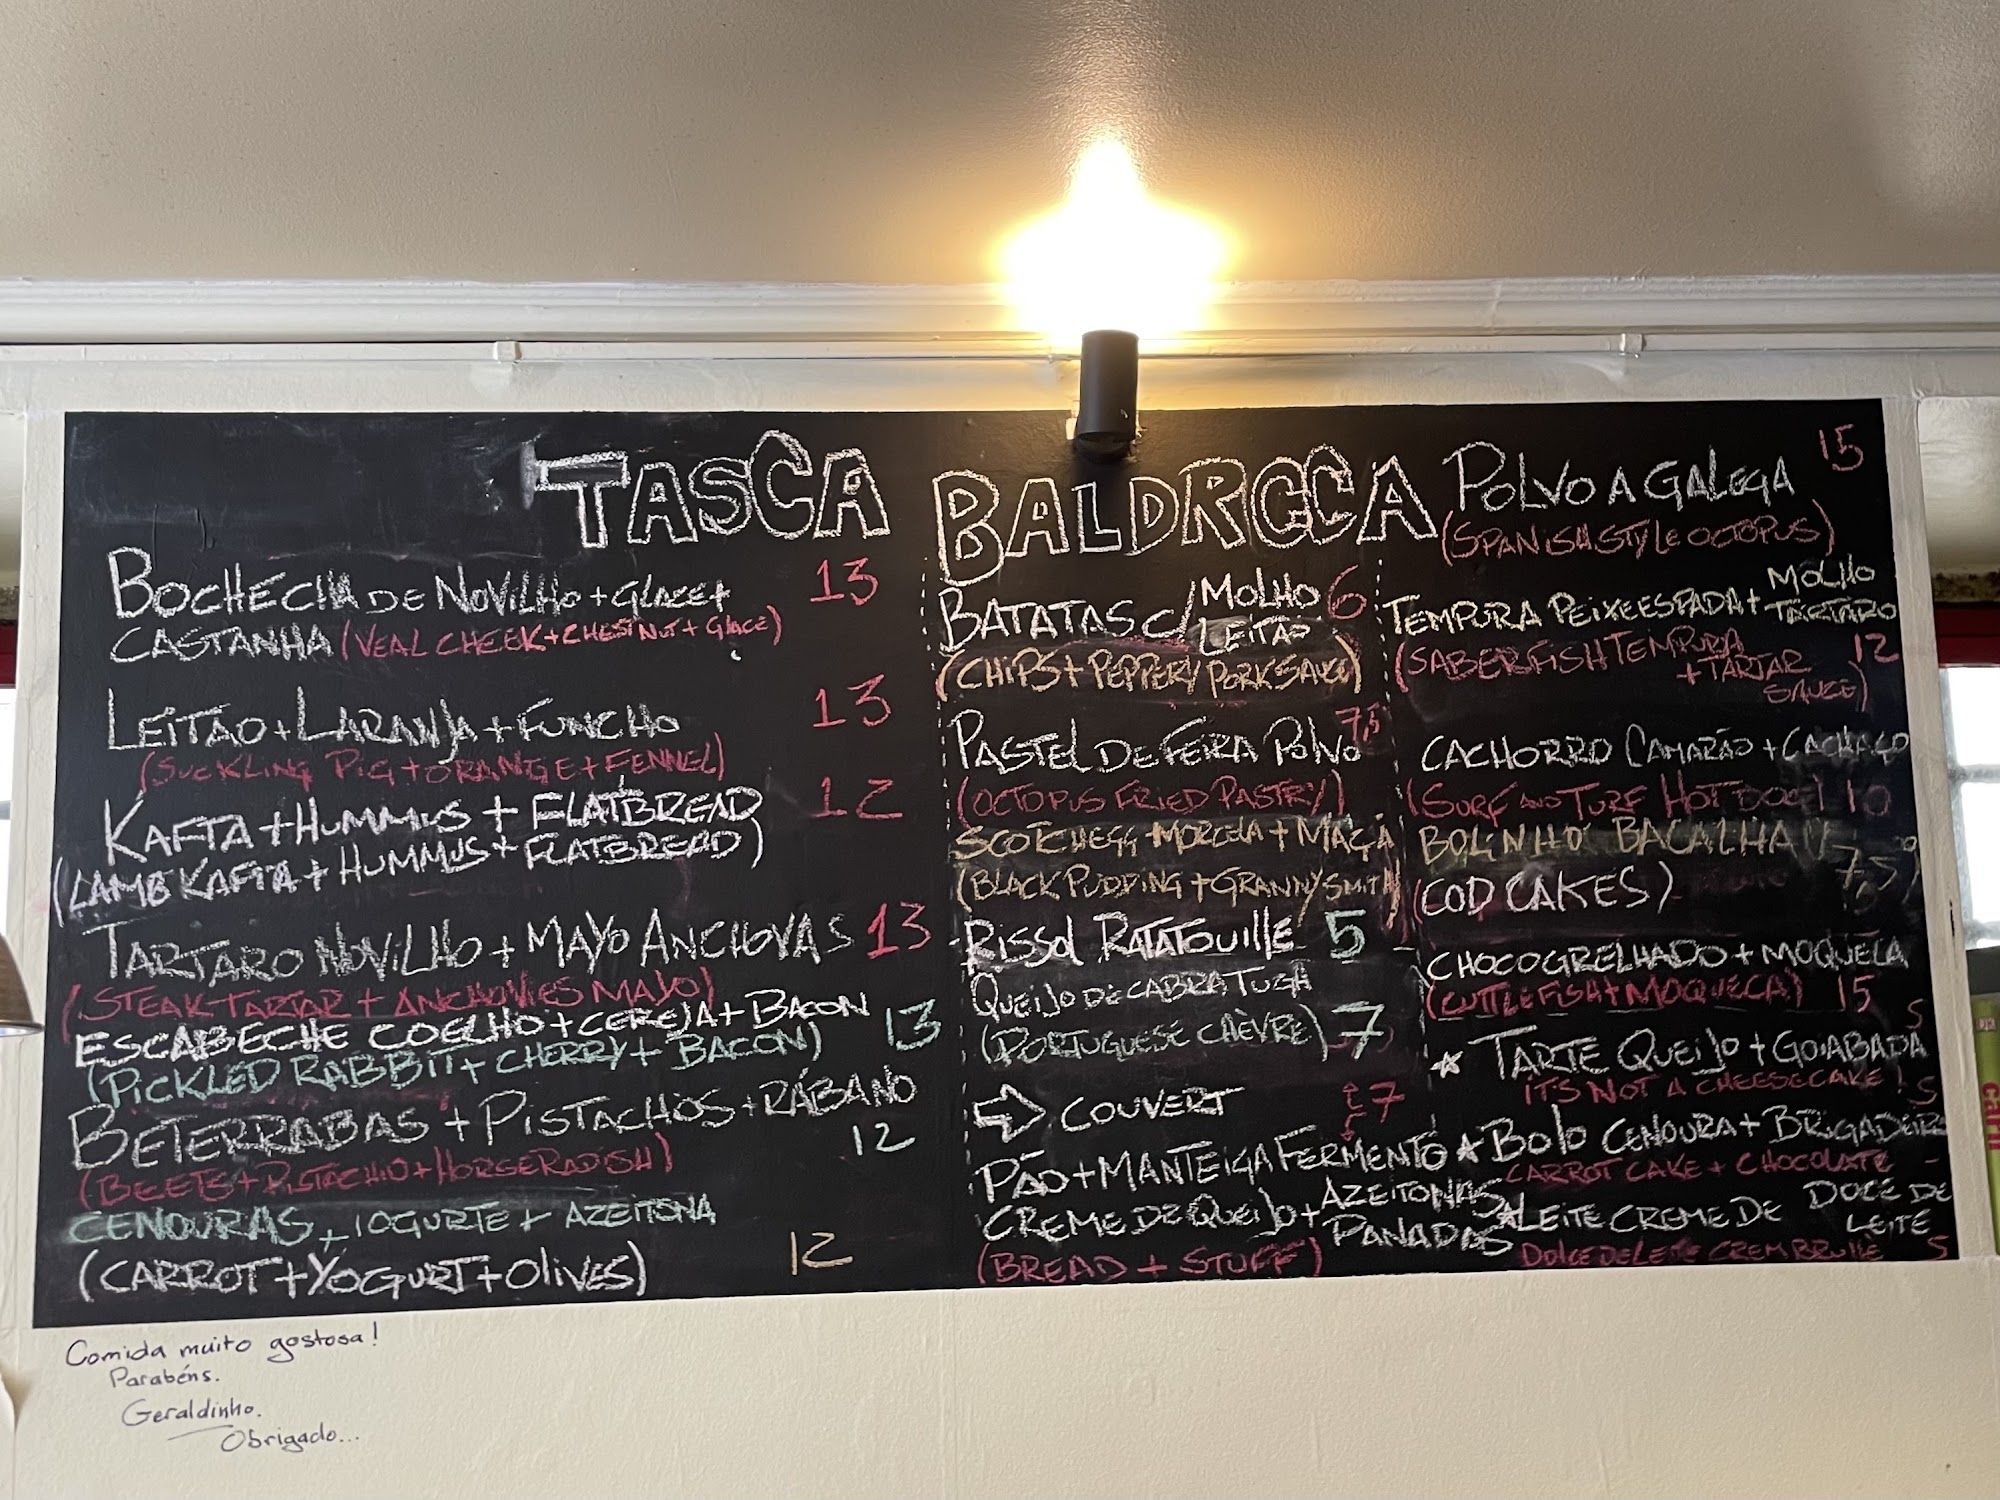 TASCA BALDRACCA
BOCHECHA DE NOVILHO + GLACE + 13
CASTANHA (VEAL CHEEK + CHESTNUT + GLACE)
LEITÃO + LARANJA + FUNCHO 13
(SUCKLING PIG + ORANGE + FENNEL)
KAFTA + HUMMUS + FLATBREAD 12
(LAMB KAFTA + HUMMUS + FLATBREAD)
TARTARO NOVILHO + MAYO ANCHOVAS 13
(STEAK TARTAR + ANCHOVIES MAYO)
ESCABECHE COELHO + CEREJA + BACON 13
(PICKLED RABBIT + CHERRY + BACON)
BETERRABAS + PISTACHOS + RÁBANO 12
(BEETS + PISTACHIO + HORSERADISH)
CENOURAS + IOGURTE + AZEITONA
(CARROT + YOGURT + OLIVES) 12
BATATAS C/ MOLHO 6
LEITÃO
(CHIPS + PEPPERY PORK SAUCE)
PASTEL DE FEIRA POLVO 7,5
(OCTOPUS FRIED PASTRY)
SCOTCH EGG MORCELA + MAÇÃ
(BLACK PUDDING + GRANNY SMITH)
RISSOL RATATOUILLE 5
QUEIJO DE CABRA TUGA
(PORTUGUESE CHÈVRE) 7
COUVERT 7
PÃO + MANTEIGA FERMENTO
CREME DE QUEIJO + AZEITONAS
PANADAS
(BREAD + STUFF)
POLVO A GALEGA 15
(SPANISH STYLE OCTOPUS)
TEMPURA PEIXE ESPADA + MOLHO
TÁRTARO
(SABERFISH TEMPURA 12
+ TARTAR
SAUCE)
CACHORRO CAMARÃO + CACHAÇO
(SURF AND TURF HOT DOG) 10
BOLINHO BACALHAU
(COD CAKES) 7,5
CHOCO GRELHADO + MOQUECA
(CUTTLEFISH + MOQUECA) 15
TARTE QUEIJO + GOIABADA 5
IT'S NOT A CHEESECAKE!
BOLO CENOURA + BRIGADEIRO 5
CARROT CAKE + CHOCOLATE
LEITE CREME DE DOCE DE
LEITE
DOLCE DE LEITE CREM BRULLÉ 5
Comida muito gostosa!
Parabéns.
Geraldinho.
Obrigado...